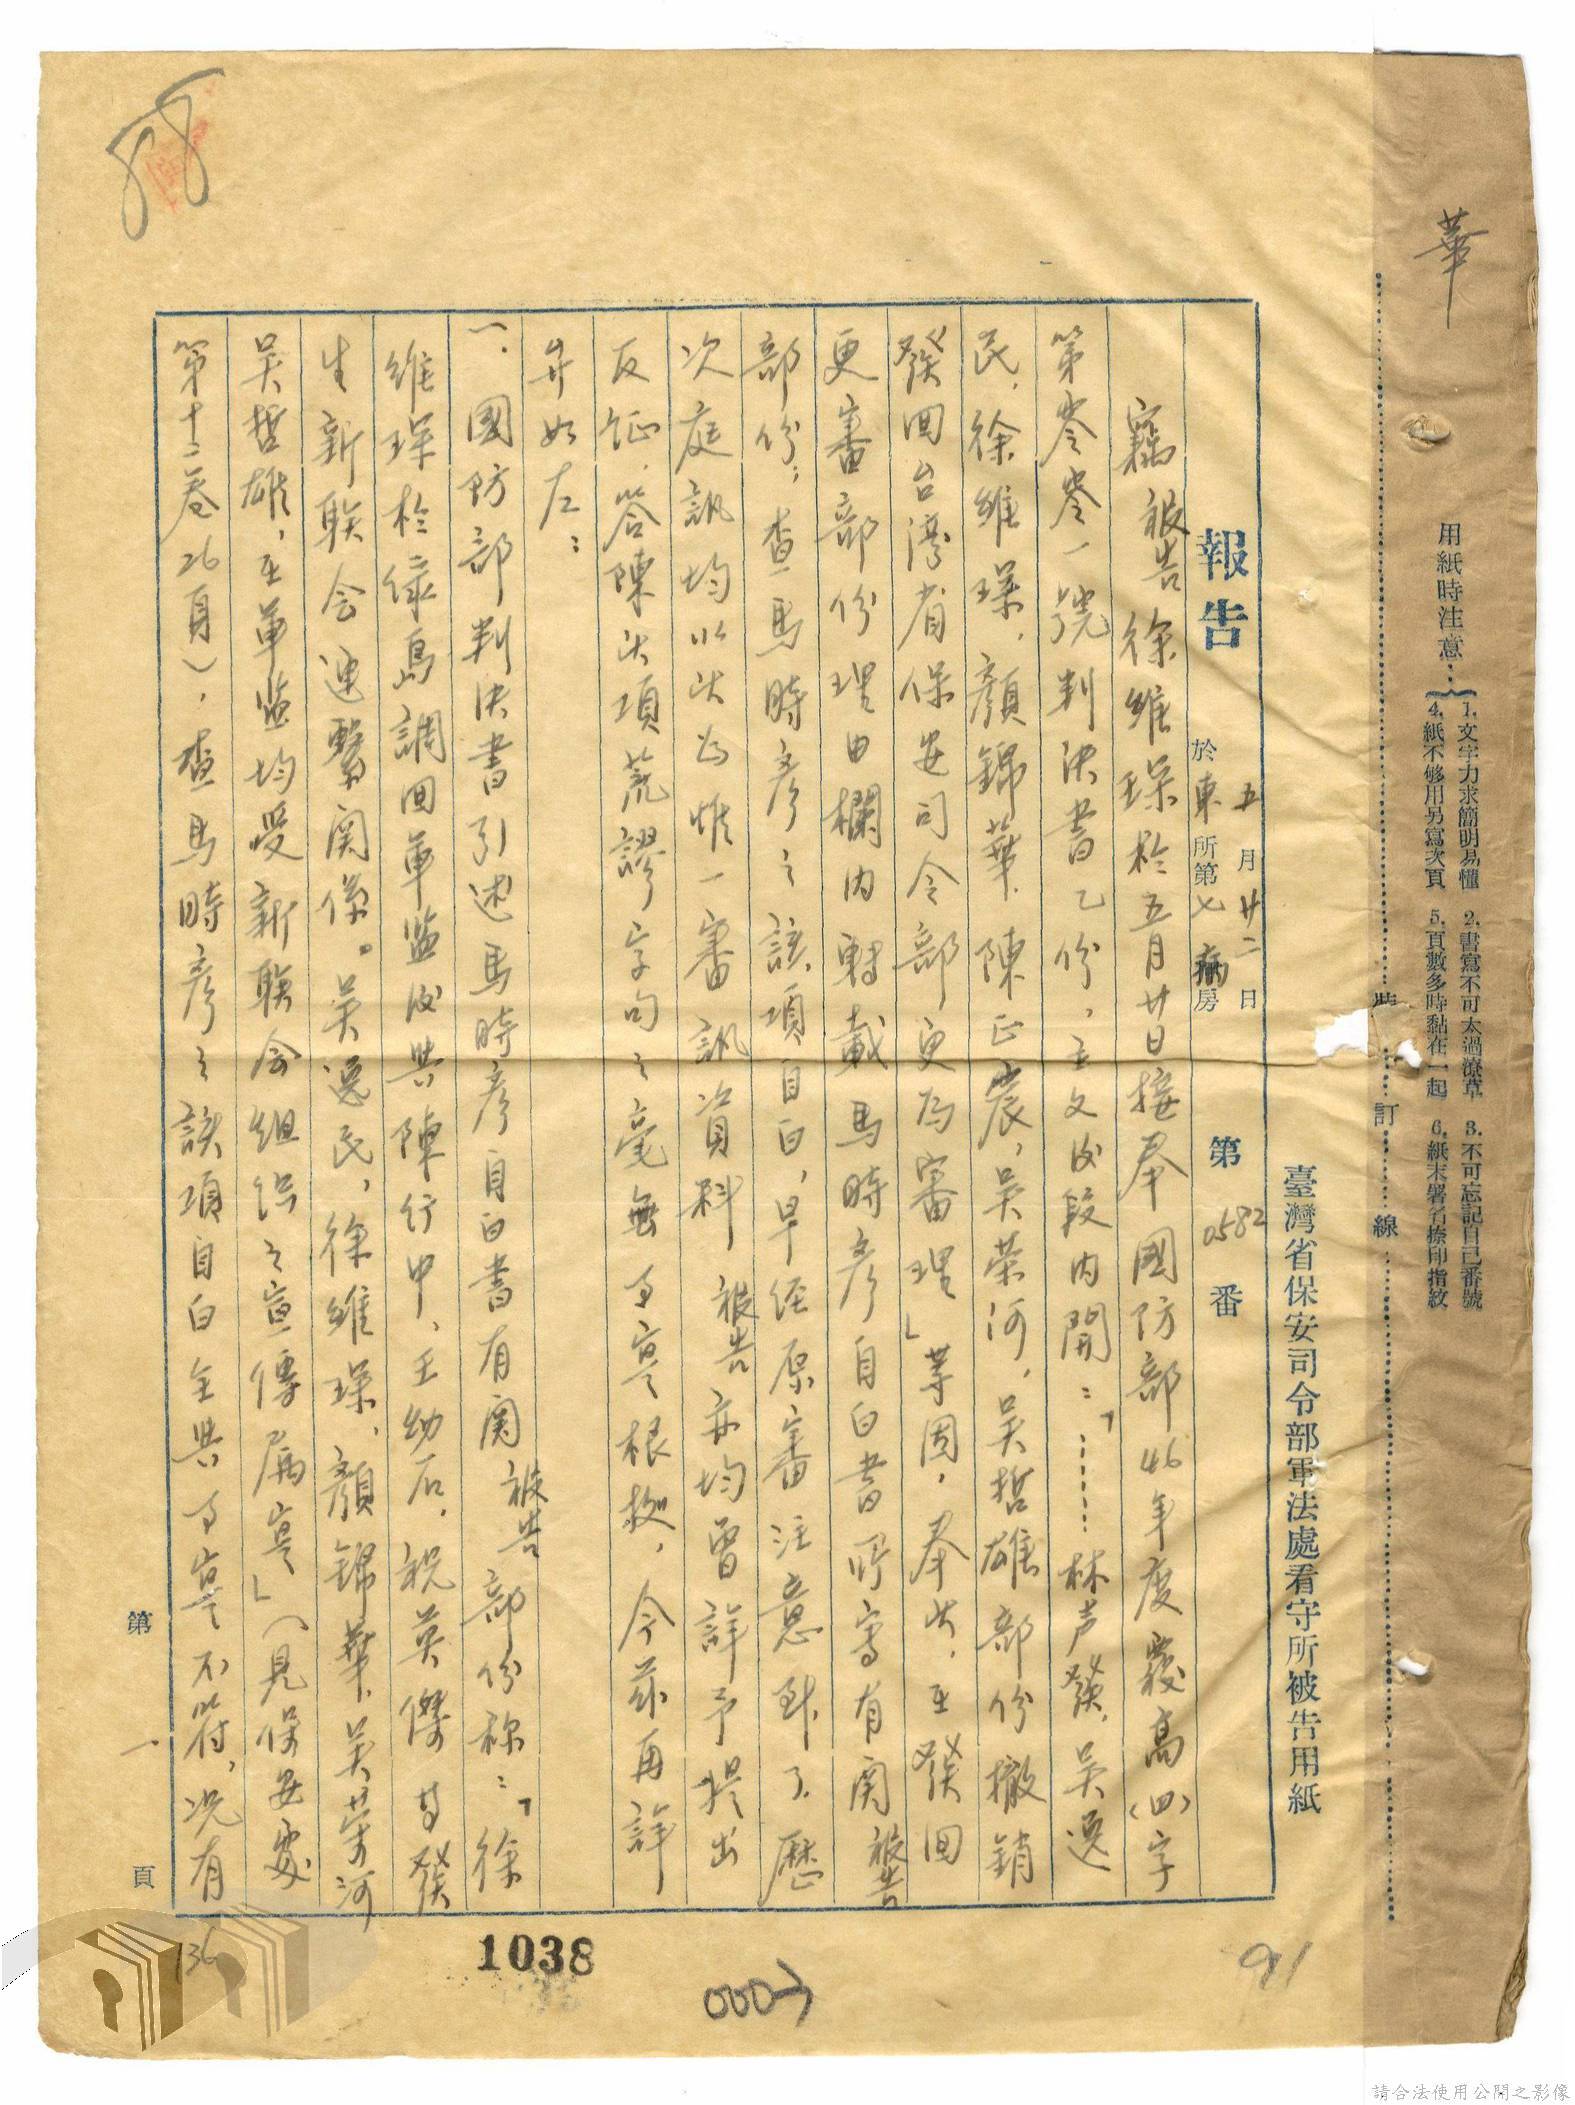 華
用紙時注意：
1.文字力求簡明易懂 2.書寫不可太過潦草 3.不可忘記自己番號
4.紙不够用另寫次頁 5.頁數多時黏在一起 6.紙末署名捺印指紋
裝訂線
臺灣省保安司令部軍法處看守所被告用紙
報告 五月廿二日 第0582番
於東所第七病房
竊被告徐維琛於五月廿日接奉國防部46年度覆高(四)字
第零零一號判決書乙份，主文後段內開：「……林声發，吳逸
民，徐維琛，顏錦華，陳正宸，吳荣河，吳哲雄部份撤銷
發回台灣省保安司令部更為審理」等因，奉此，至發回
更審部份理由欄內轉載馬時彥自白書所寫有関被告
部份；查馬時彥之該項自白，早經原審注意到了，歷
次庭訊均以此為惟一審訊資料，被告亦均曾詳予提出
反証，答陳此項荒謬字句之毫無事实根拠，今茲再詳
弁如左：
一．國防部判決書引述馬時彥自白書有関被告部份称：「徐
維琛於緑島調回軍监後與陳行中，王幼石，祝英傑等發
生新联会連繫関係。吴逸民，徐維琛，顏錦華，吴荣河
吴哲雄，在軍监均受新联会組织之宣傳属实」（見保安處
第十二卷26頁），查馬時彥之該項自白全與事实不符，况有
第一頁
136
1038
0007
91
88
請合法使用公開之影像